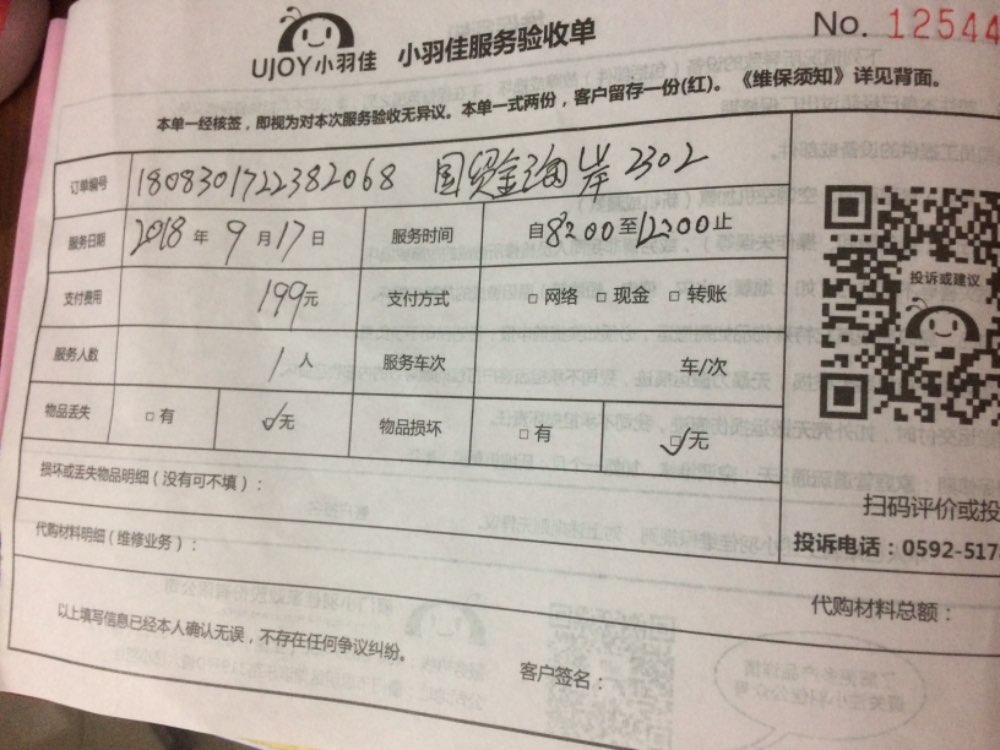 UJOY小羽佳 小羽佳服务验收单 No. 12544
本单一经核签，即视为对本次服务验收无异议。本单一式两份，客户留存一份(红)。《维保须知》详见背面。
订单编号 1808301722382068 国贸金海岸 2302
服务日期 2018 年 9 月 17 日 服务时间 自8:00至12:00止
支付费用 199元 支付方式 □ 网络 □ 现金 □ 转账
服务人数 1 人 服务车次 车/次
物品丢失 □ 有 ☑无 物品损坏 □ 有 ☑无
损坏或丢失物品明细（没有可不填）：
代购材料明细（维修业务）：
投诉或建议
扫码评价或投
投诉电话：0592-517
代购材料总额：
以上填写信息已经本人确认无误，不存在任何争议纠纷。
客户签名：